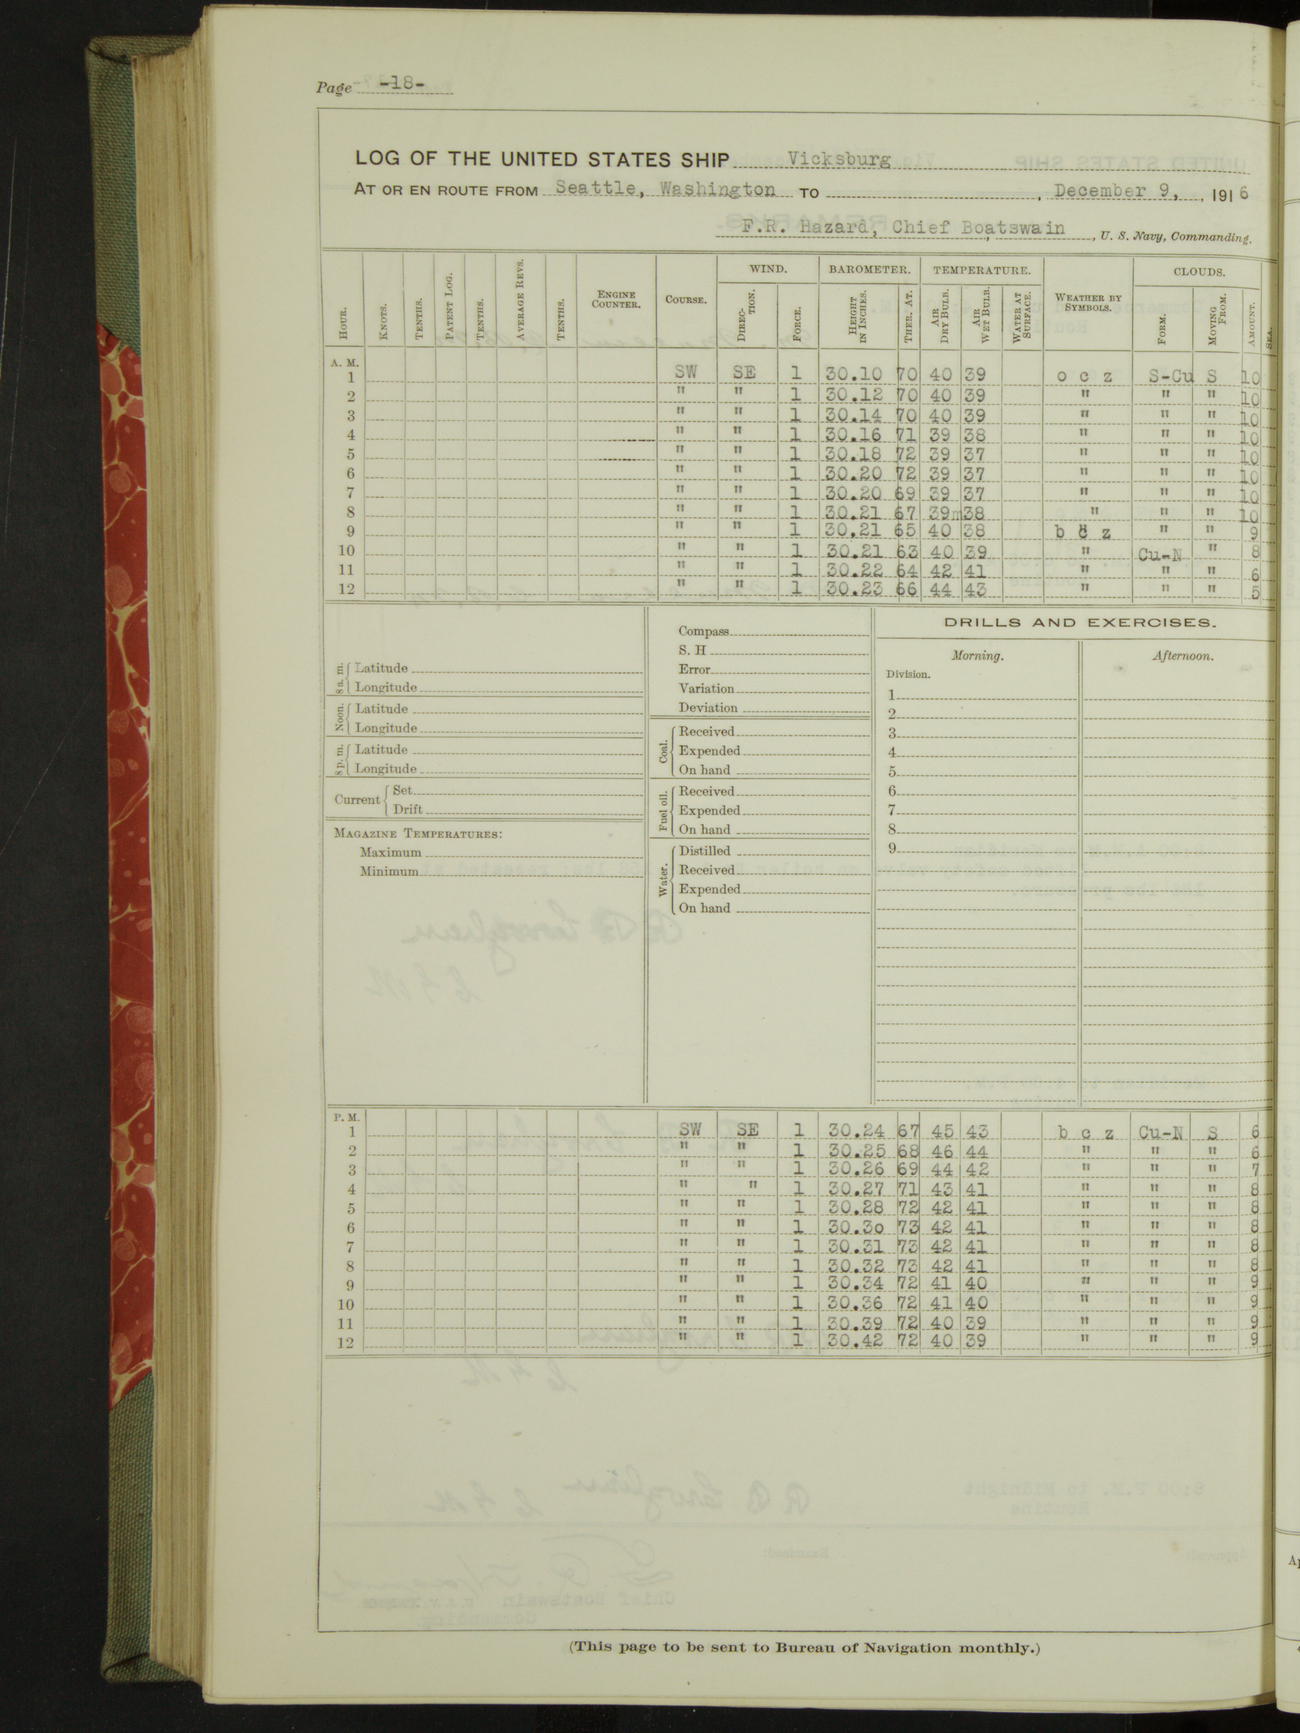 Page -18-
LOG OF THE UNITED STATES SHIP Vicksburg
AT OR EN ROUTE FROM Seattle, Washington TO , December 9, , 1916
F.R. Hazard, Chief Boatswain , U. S. Navy, Commanding.
HOUR. KNOTS. TENTHS. PATENT LOG. TENTHS. AVERAGE REVS. TENTHS. ENGINE COUNTER. COURSE. WIND. DIRECTION. FORCE. BAROMETER. HEIGHT IN INCHES. THER. AT. TEMPERATURE. AIR DRY BULB. AIR WET BULB. WATER AT SURFACE. WEATHER BY SYMBOLS. CLOUDS. FORM. MOVING FROM. AMOUNT. SEA.
A. M.
1 SW SE 1 30.10 70 40 39 o c z S-Cu S 10
2 " " 1 30.12 70 40 39 " " " 10
3 " " 1 30.14 70 40 39 " " " 10
4 " " 1 30.16 71 39 38 " " " 10
5 " " 1 30.18 72 39 37 " " " 10
6 " " 1 30.20 72 39 37 " " " 10
7 " " 1 30.20 69 39 37 " " " 10
8 " " 1 30.21 67 39m38 " " " 10
9 " " 1 30.21 65 40 38 b c z " " 9
10 " " 1 30.21 63 40 39 " Cu-N " 8
11 " " 1 30.22 64 42 41 " " " 6
12 " " 1 30.23 66 44 43 " " " 5
8 a. m. Latitude
Longitude
Noon. Latitude
Longitude
8 p. m. Latitude
Longitude
Current Set
Drift
MAGAZINE TEMPERATURES:
Maximum
Minimum
Compass
S. H
Error
Variation
Deviation
Coal. Received
Expended
On hand
Fuel oil. Received
Expended
On hand
Water. Distilled
Received
Expended
On hand
DRILLS AND EXERCISES.
Morning. Afternoon.
Division.
1
2
3
4
5
6
7
8
9
P. M.
1 SW SE 1 30.24 67 45 43 b c z Cu-N S 6
2 " " 1 30.25 68 46 44 " " " 6
3 " " 1 30.26 69 44 42 " " " 7
4 " " 1 30.27 71 43 41 " " " 8
5 " " 1 30.28 72 42 41 " " " 8
6 " " 1 30.30 73 42 41 " " " 8
7 " " 1 30.31 73 42 41 " " " 8
8 " " 1 30.32 73 42 41 " " " 8
9 " " 1 30.34 72 41 40 " " " 9
10 " " 1 30.36 72 41 40 " " " 9
11 " " 1 30.39 72 40 39 " " " 9
12 " " 1 30.42 72 40 39 " " " 9
(This page to be sent to Bureau of Navigation monthly.)